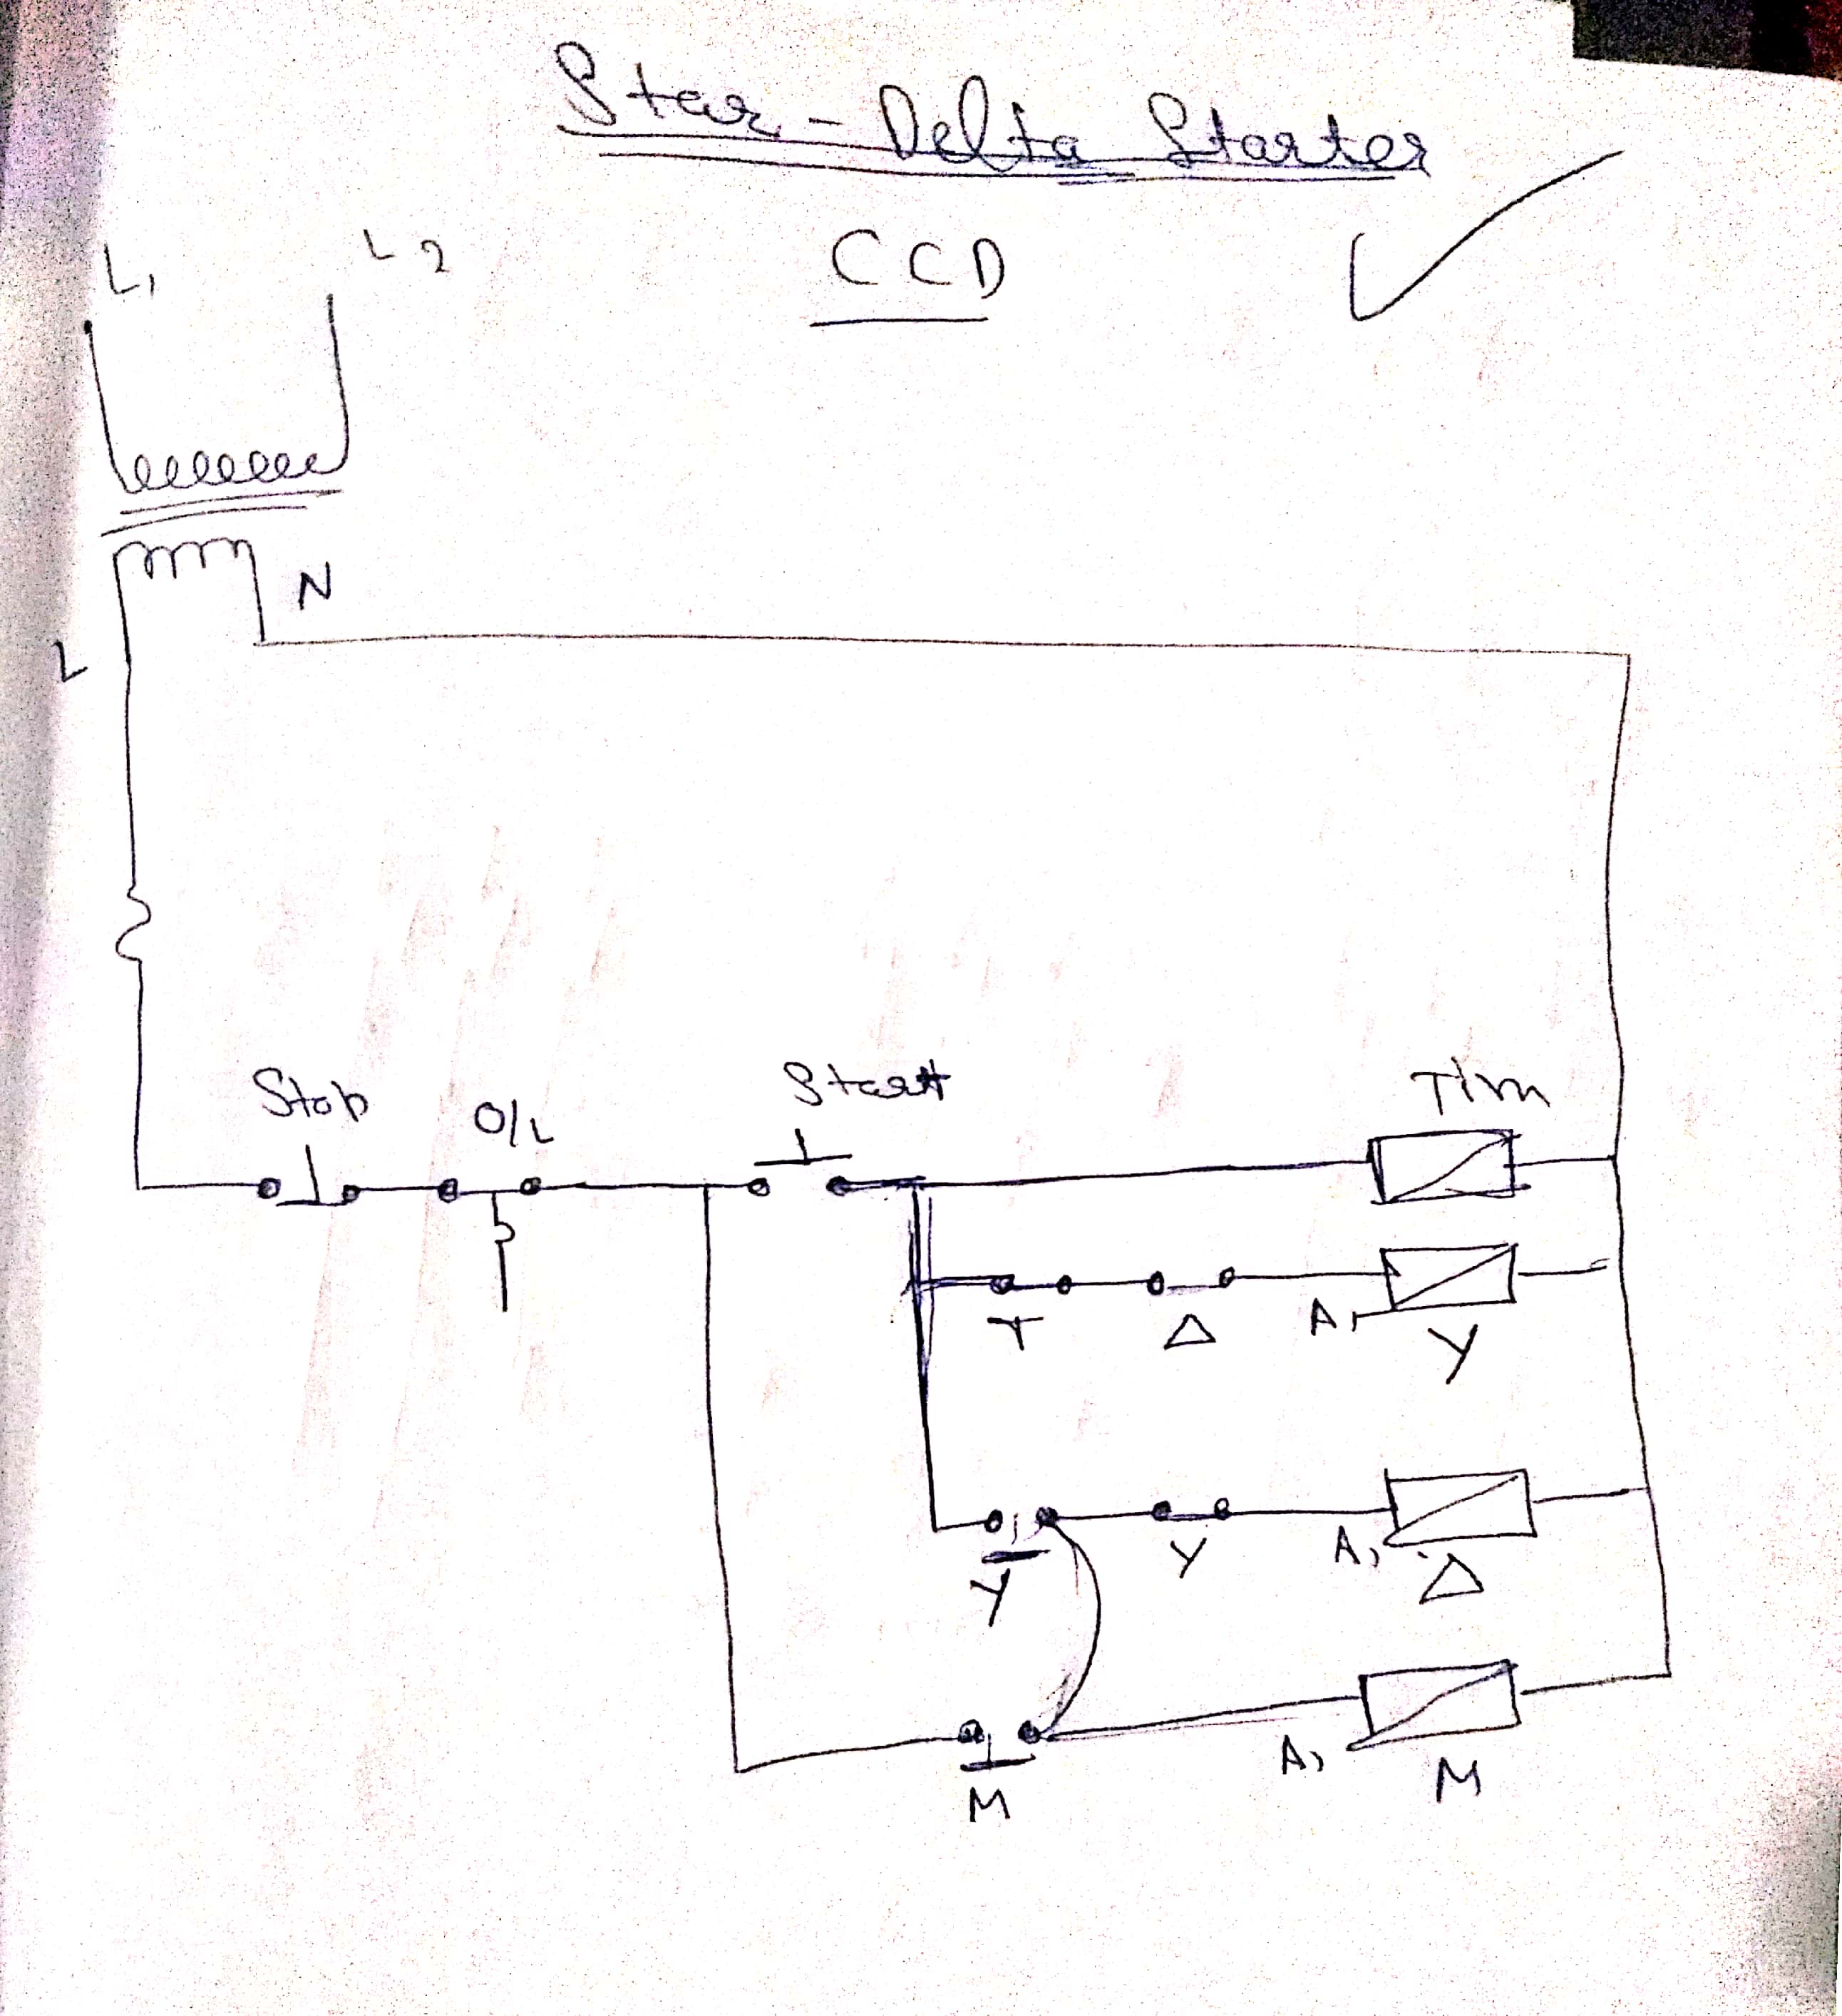 Star - Delta Starter
CCD
L1 L2
N
L
Stop O/L Start Tim
T Δ A1 Y
Y Y A1 Δ
M A1 M